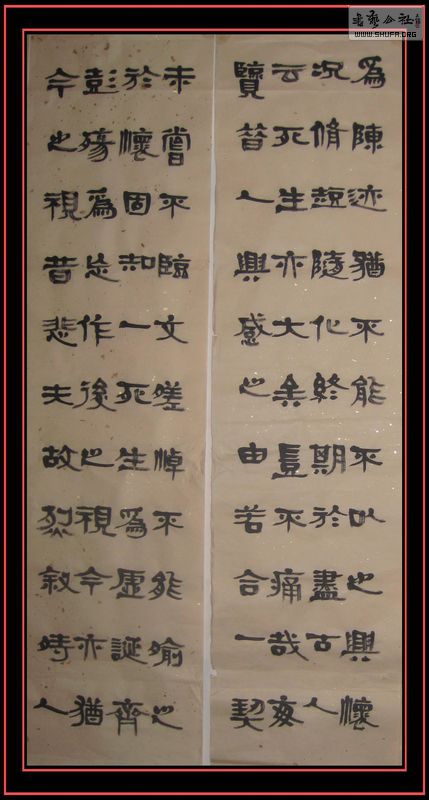 書藝公社
WWW.SHUFA.ORG
爲陳迹猶不能不以之興懷
况脩短隨化終期於盡古人
云死生亦大矣豈不痛哉每
覽昔人興感之由若合一契
未嘗不臨文嗟悼不能喻之
於懷固知一死生爲虛誕齊
彭殤爲妄作後之視今亦猶
今之視昔悲夫故列叙時人